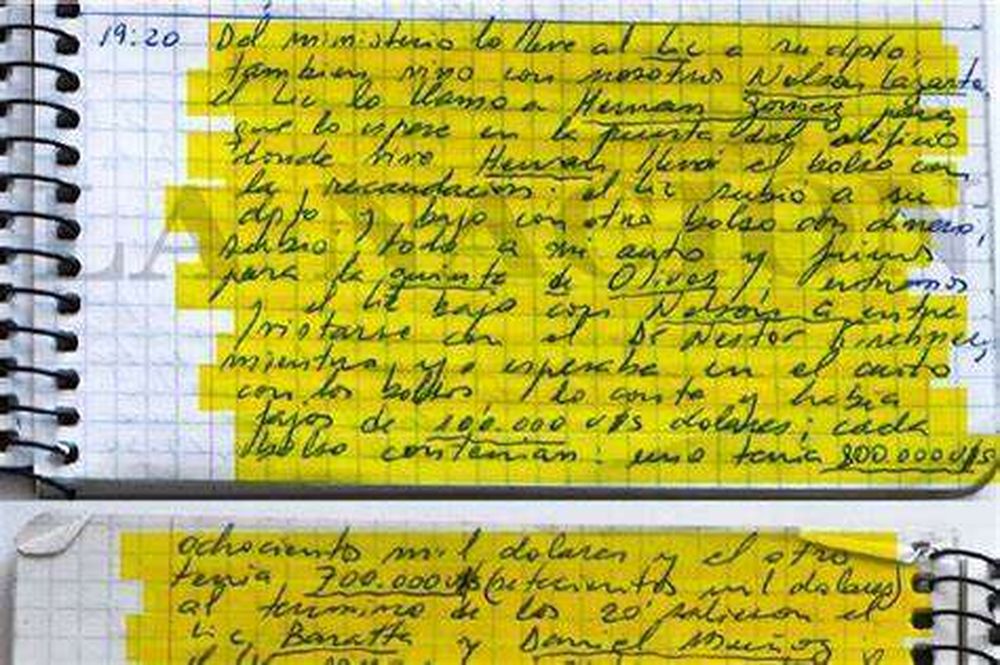 19:20 Del ministerio lo lleve al Lic a su dpto,
tambien vino con nosotros Nelson Lazarte,
el Lic lo llamo a Hernan Gomez para
que lo espere en la puerta del edificio
donde vive Hernan llevó el bolso con
la recaudacion. el Lic subio a su
dpto. y bajo con otro bolso con dinero,
subio todo a mi auto y fuimos
para la quinta de Olivos, entramos
y el Lic bajo con Nelson a entre
vistarse con el Dr Nestor Kirchner,
mientras yo esperaba en el auto
con los bolsos lo conte y habia
fajos de 100.000 U$S dolares; cada
bolso contenian: uno tenia 800.000 U$S
ochociento mil dolares y el otro
tenia 700.000 U$S (setecientos mil dolares)
al termino de los 20' salieron el
Lic Baratta y Daniel Muñoz
LA NACION